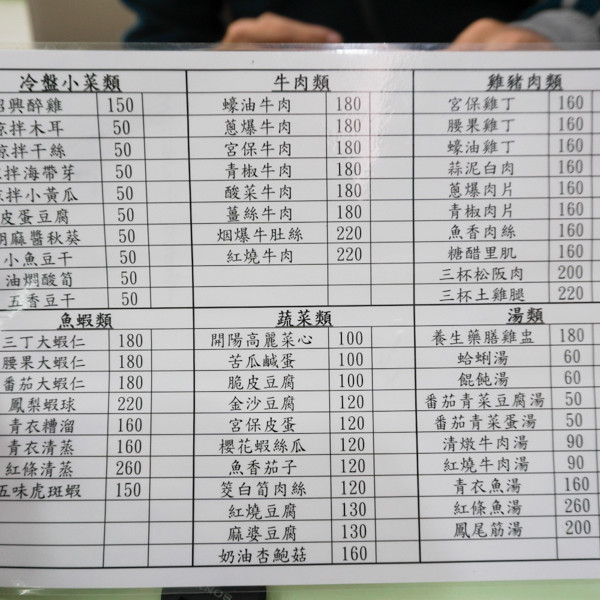 冷盤小菜類
紹興醉雞 150
涼拌木耳 50
涼拌干絲 50
涼拌海帶芽 50
涼拌小黃瓜 50
皮蛋豆腐 50
胡麻醬秋葵 50
小魚豆干 50
油燜酸筍 50
五香豆干 50
魚蝦類
三丁大蝦仁 180
腰果大蝦仁 180
番茄大蝦仁 180
鳳梨蝦球 220
青衣糟溜 160
青衣清蒸 160
紅條清蒸 260
五味虎斑蝦 150
牛肉類
蠔油牛肉 180
蔥爆牛肉 180
宮保牛肉 180
青椒牛肉 180
酸菜牛肉 180
薑絲牛肉 180
烟爆牛肚絲 220
紅燒牛肉 220
蔬菜類
開陽高麗菜心 100
苦瓜鹹蛋 100
脆皮豆腐 100
金沙豆腐 120
宮保皮蛋 120
櫻花蝦絲瓜 120
魚香茄子 120
筊白筍肉絲 120
紅燒豆腐 130
麻婆豆腐 130
奶油杏鮑菇 160
雞豬肉類
宮保雞丁 160
腰果雞丁 160
蠔油雞丁 160
蒜泥白肉 160
蔥爆肉片 160
青椒肉片 160
魚香肉絲 160
糖醋里肌 160
三杯松阪肉 200
三杯土雞腿 220
湯類
養生藥膳雞盅 180
蛤蜊湯 60
餛飩湯 60
番茄青菜豆腐湯 50
番茄青菜蛋湯 50
清燉牛肉湯 90
紅燒牛肉湯 90
青衣魚湯 160
紅條魚湯 260
鳳尾筋湯 200